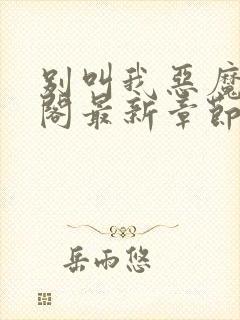 别叫我恶魔
阁最新章节
岳雨悠